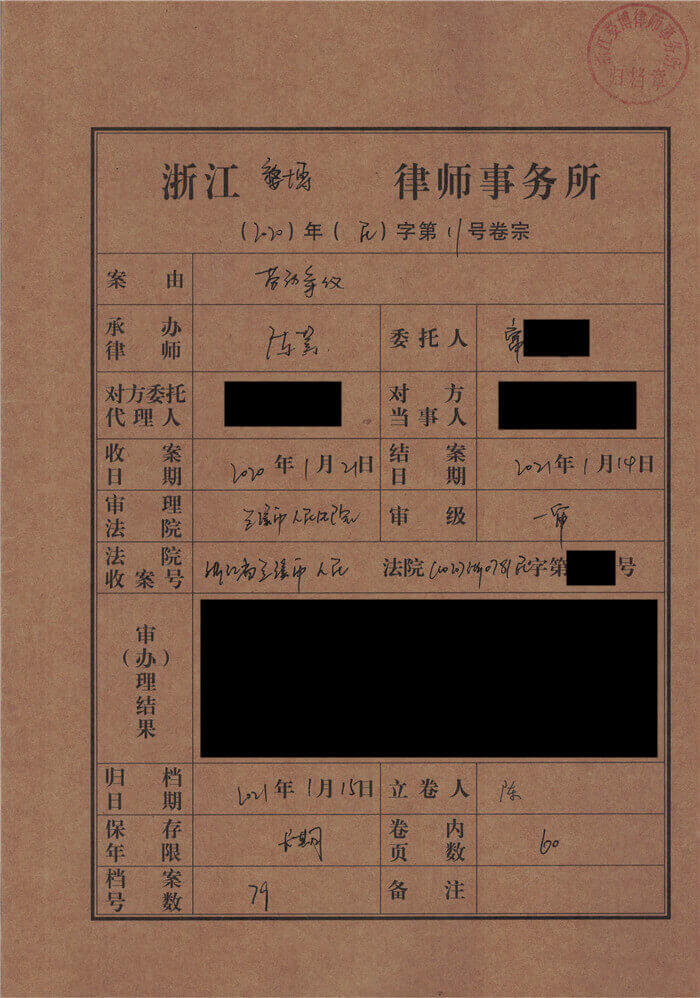 浙江黎博律师事务所
归档章
浙江 黎博 律师事务所
(2020)年(民)字第11号卷宗
案由 劳动争议
承办律师 陈 委托人 章
对方委托代理人 对方当事人
收案日期 2020年1月21日 结案日期 2021年1月14日
审理法院 兰溪市人民法院 审级 一审
法院收案号 浙江省兰溪市人民 法院(2020)浙0781民字第 号
审(办)理结果
归档日期 2021年1月15日 立卷人 陈
保存年限 长期 卷内页数 60
档案号数 79 备注